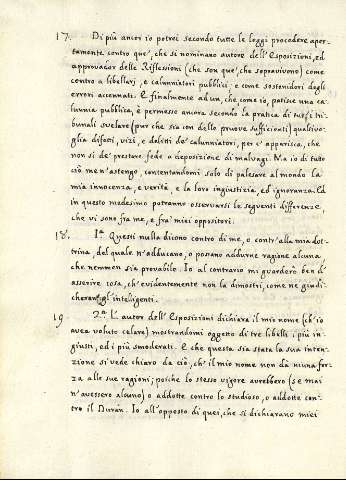 17. Di più ancor io potrei secondo tutte le leggi procedere aper-
tamente contro que', che si nominano autore dell'Esposizioni, ed
approvador delle Riflessioni (che son que', che sopravivono) come
contro a libellarj, e calunniatori pubblici e come sostenidori degli
errori accennati. E finalmente ad un, che come io, patisce una ca-
lunnia pubblica, è permesso ancora secondo la pratica di tutti i tri-
bunali svelare (pur che sia con delle pruove sufficienti) qualsivo-
glia difetti, vizi, e delitti de' calunniatori, per c'apparisca, che
non si de' prestare fede a deposizione di malvagi. Ma io di tutto
ciò me n'astengo, contentandomi solo di palesare al mondo la
mia innocenza, e verità, e la loro ingiustizia, ed ignoranza. Ed
in questo medesimo potranno osservarsi le seguenti differenze,
che vi sono fra me, e fra' miei oppositori.
18. 1ª. Questi nulla dicono contro di me, o contr'alla mia dot-
trina, del quale n'adducano, o posano addurne ragione alcuna,
che nemmen sia provabile. Io al contrario mi guarderò ben d'
asserire cosa, ch'evidentemente non la dimostri, come ne giudi-
cheranno gl'intelligenti.
19. 2ª. L'autor dell'Esposizioni dichiara il mio nome (ch'io
avea voluto celare) mostrandomi oggetto di tre libelli i più in-
giusti, ed i più smoderati. E che questa sia stata la sua inten-
zione si vede chiaro da ciò, ch'il mio nome non dà niuna for-
za alle sue ragioni; poiche lo stesso vigore avrebbero (se mai
n'avessero alcuno) o addotte contro lo studioso, o addotte con-
tro il Duran. Io all'opposto di quei, che si dichiarano miei